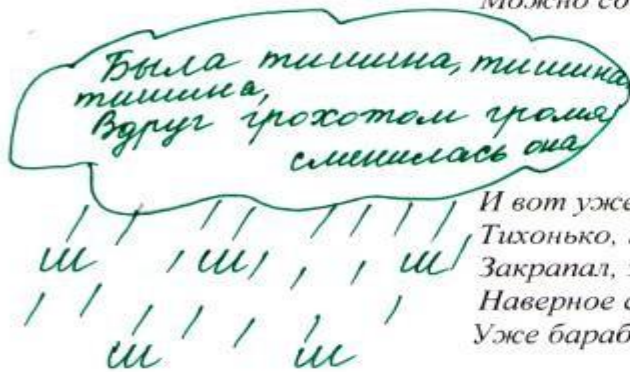 Можно со
Была тишина, тишина,
тишина,
Вдруг грохотом грома
сменилась она
И вот уже
Тихонько,
Закрапал,
Наверное с
Уже бараб
ш ш ш
ш ш